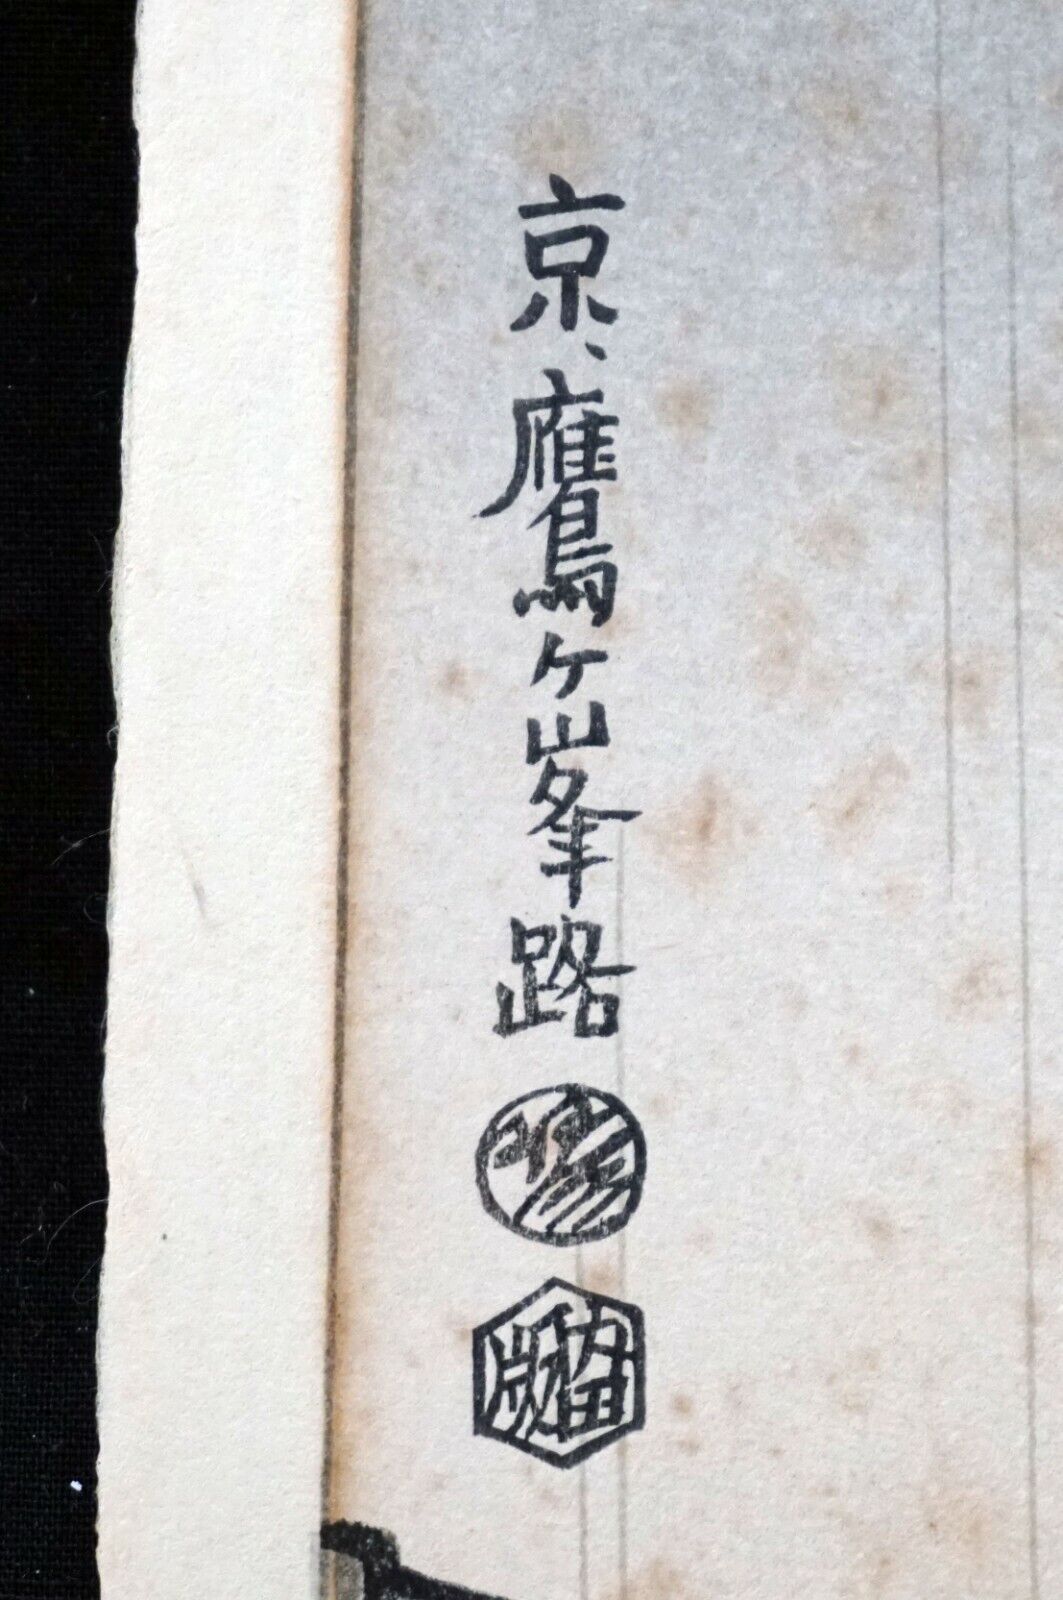 京、鷹ヶ峯路